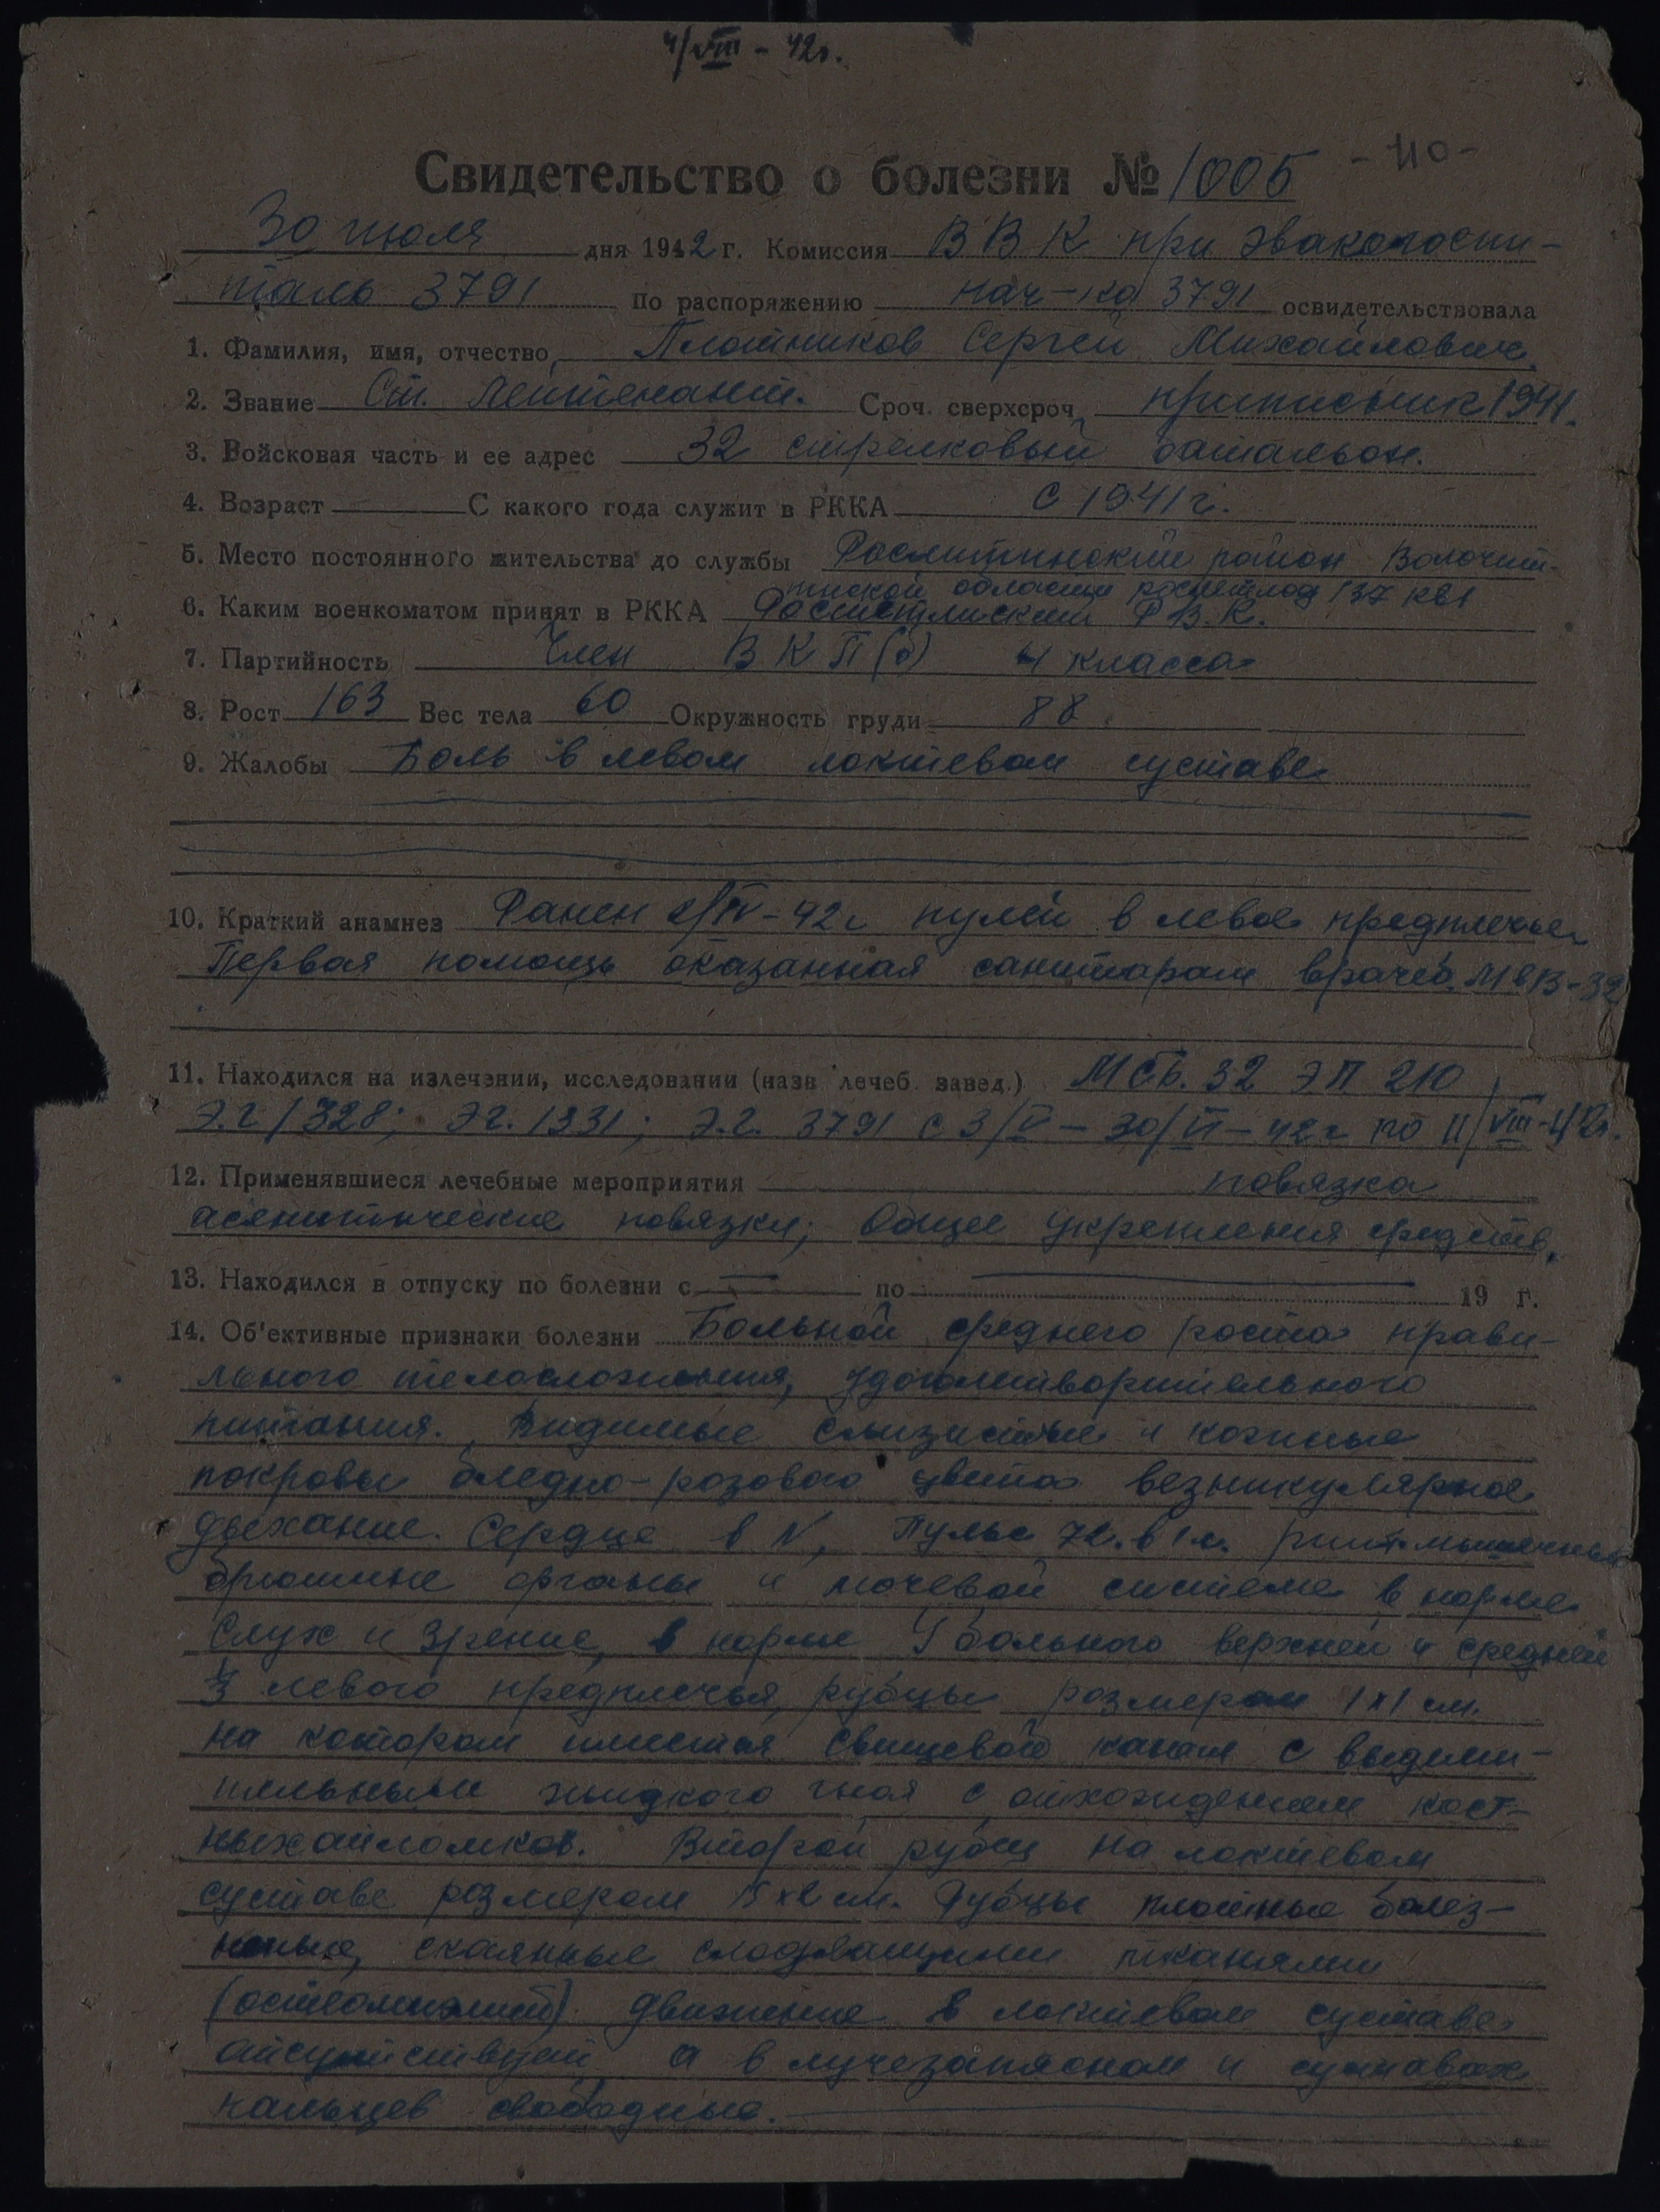 4/VIII - 42г.
Свидетельство о болезни № 1005 - 110 -
30 июля дня 1942 г. Комиссия ВВК при эвакогоспи-
таль 3791 По распоряжению нач-ка 3791 освидетельствовала
1. Фамилия, имя, отчество Плотников Сергей Михайлович
2. Звание Ст. лейтенант. Сроч. сверхсроч. приписник 1941.
3. Войсковая часть и ее адрес 32 стрелковый батальон.
4. Возраст С какого года служит в РККА с 1941 г.
5. Место постоянного жительства до службы район
области 137 кв 1
6. Каким военкоматом принят в РККА Р.В.К.
7. Партийность Член ВКП(б) 4 класса
8. Рост 163 Вес тела 60 Окружность груди 88
9. Жалобы Боль в левом локтевом суставе
10. Краткий анамнез Ранен 2/IV-42г пулей в левое предплечье
Первая помощь оказанная санитаром врачеб.
11. Находился на излечении, исследовании (назв. лечеб. завед.) МСБ. 32 ЭП 210
Э.г 1328; Эг. 1331; Э.г. 3791 с 3/V - 30/VI - 42г по 11/VIII-42г.
12. Применявшиеся лечебные мероприятия повязка
асептические повязки; Общее укрепления средств.
13. Находился в отпуску по болезни с по 19 г.
14. Об'ективные признаки болезни Больной среднего роста прави-
льного телосложения, удовлитворительного
питания. Видимые слизистые и кожные
покровы бледно-розового цвета везикулярное
дыхание. Сердце в N, Пульс 72. в 1 м.
брюшные органы и мочевой системе в норме
Слух и зрение, в норме У больного верхней и средней
1/3 левого предплечья, рубцы розмером 1х1 см.
на котором имеется свищевой канал с выдели-
тельными жидкого гноя с отхождением кост-
ных отломков. Второй рубец на локтевом
суставе розмером см. Рубцы плотные болез-
неные, спаянные тканями
(остеомиэлит) движение в локтевом суставе
отсутствует, а в лучезапясном и суставах
пальцев свободные.